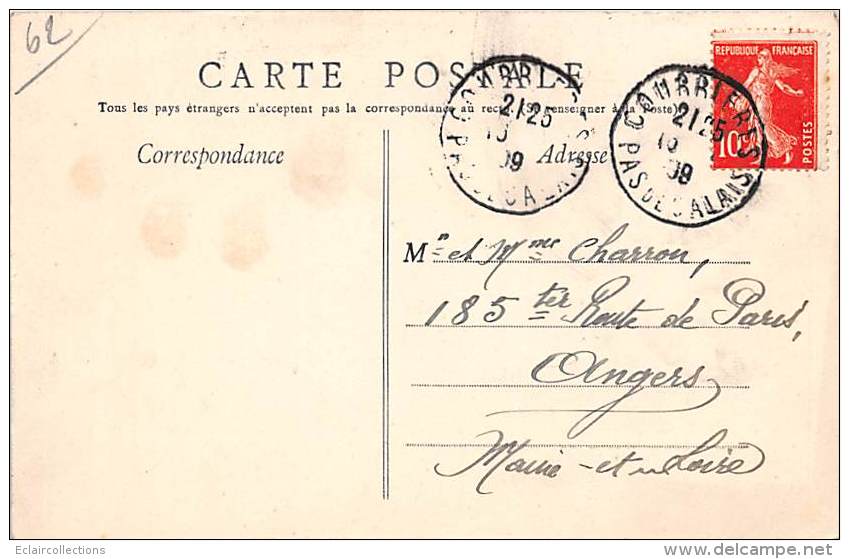 62
CARTE POSTALE
Tous les pays étrangers n'acceptent pas la correspondance au recto (Se renseigner à la Poste)
Correspondance
Adresse
COURRIERES
21 25
09
PAS DE CALAIS
COURRIERES
21 25
09
PAS DE CALAIS
REPUBLIQUE FRANÇAISE
10
POSTES
Mr et Mme Charron,
185 ter Route de Paris,
Angers
Maine-et-Loire
Eclaircollections
www.delcampe.net